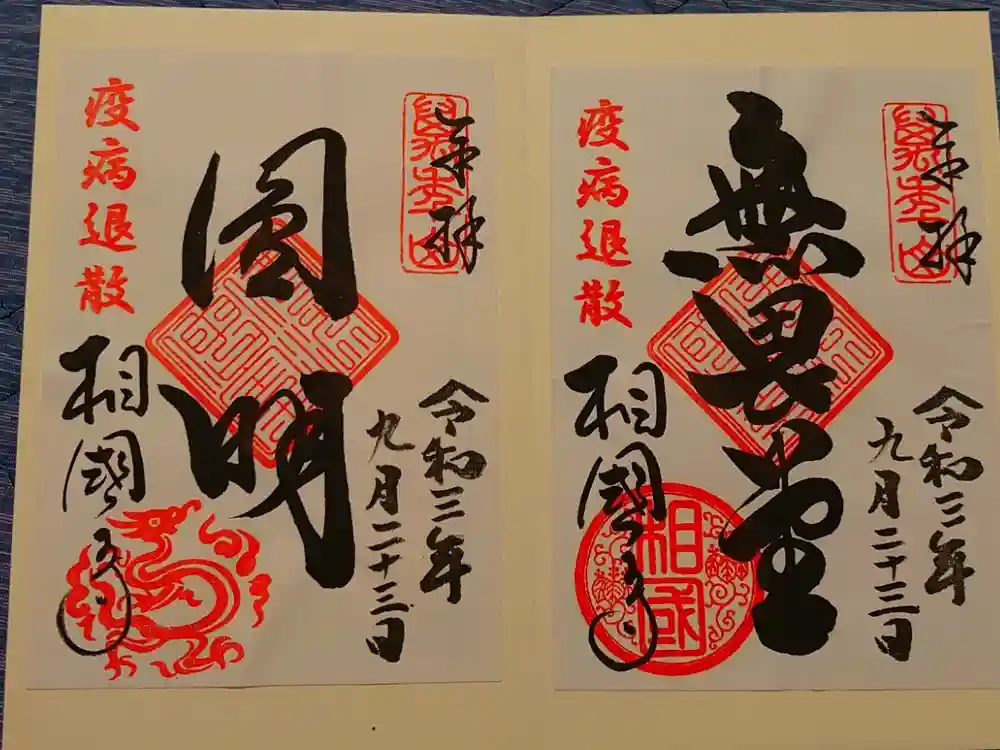 奉拝
令和三年
九月二十三日
無畏堂
疫病退散
相國寺
相国
奉拝
令和三年
九月二十三日
圓明
疫病退散
相國寺